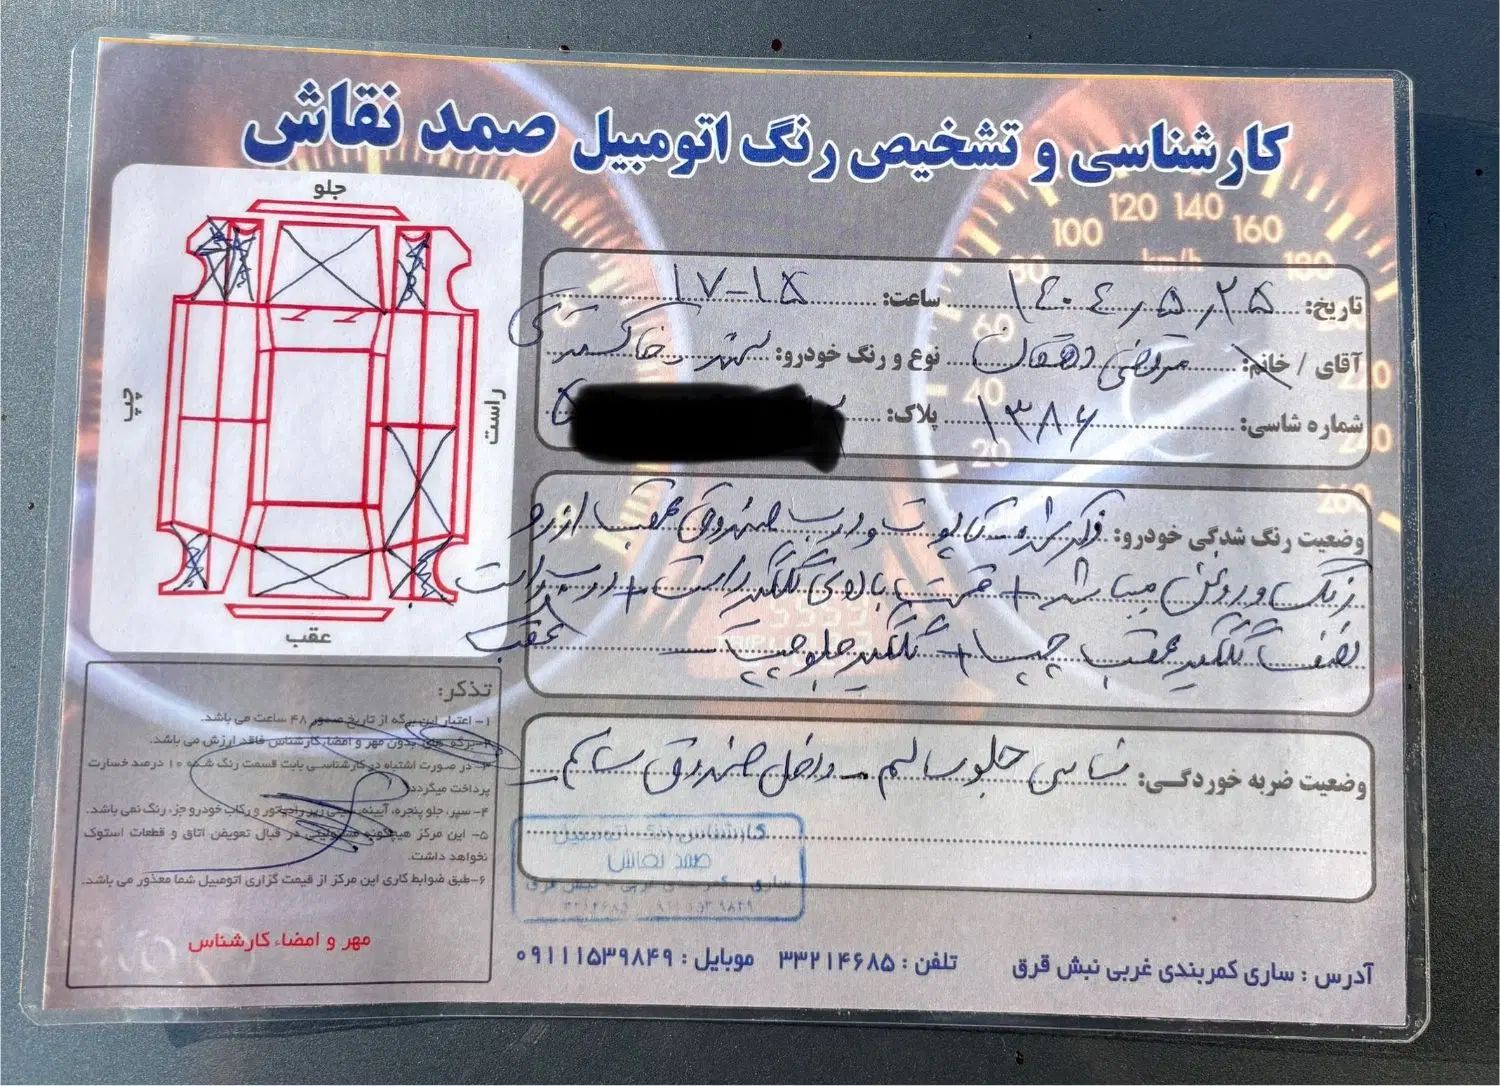 کارشناسی و تشخیص رنگ اتومبیل صمد نقاش
جلو
چپ
راست
عقب
تاریخ: ۱۴۰۴٫۵٫۲۵ ساعت: ۱۷-۱۵
آقای / خانم: مرتضی دهقان نوع و رنگ خودرو: سمند خاکستری
شماره شاسی: ۱۳۸۶ پلاک:
وضعیت رنگ شدگی خودرو: ذکر شده کاپوت و درب صندوق عقب از دم
رنگ و روغن میباشد + قسمت بالای گلگیر راست + درب راست عقب
نصف گلگیر عقب چپ + گلگیر جلو چپ
وضعیت ضربه خوردگی: شاسی جلو سالم - داخل صندوق سالم -
تذکر:
۱- اعتبار این برگه از تاریخ صدور ۴۸ ساعت می باشد.
۲- برگه های بدون مهر و امضاء کارشناس فاقد ارزش می باشد.
۳- در صورت اشتباه در کارشناسی بابت قسمت رنگ شده ۱۰ درصد خسارت
پرداخت میگردد.
۴- سپر، جلو پنجره، آیینه، سینی زیر رادیاتور و رکاب خودرو جزء رنگ نمی باشد.
۵- این مرکز هیچگونه مسئولیتی در قبال تعویض اتاق و قطعات استوک
نخواهد داشت.
۶- طبق ضوابط کاری این مرکز از قیمت گزاری اتومبیل شما معذور می باشد.
مهر و امضاء کارشناس
کارشناسی رنگ اتومبیل
صمد نقاش
ساری - کمربندی غربی - نبش قرق
آدرس : ساری کمربندی غربی نبش قرق تلفن : ۳۳۲۱۴۶۸۵ موبایل : ۰۹۱۱۱۵۳۹۸۴۹